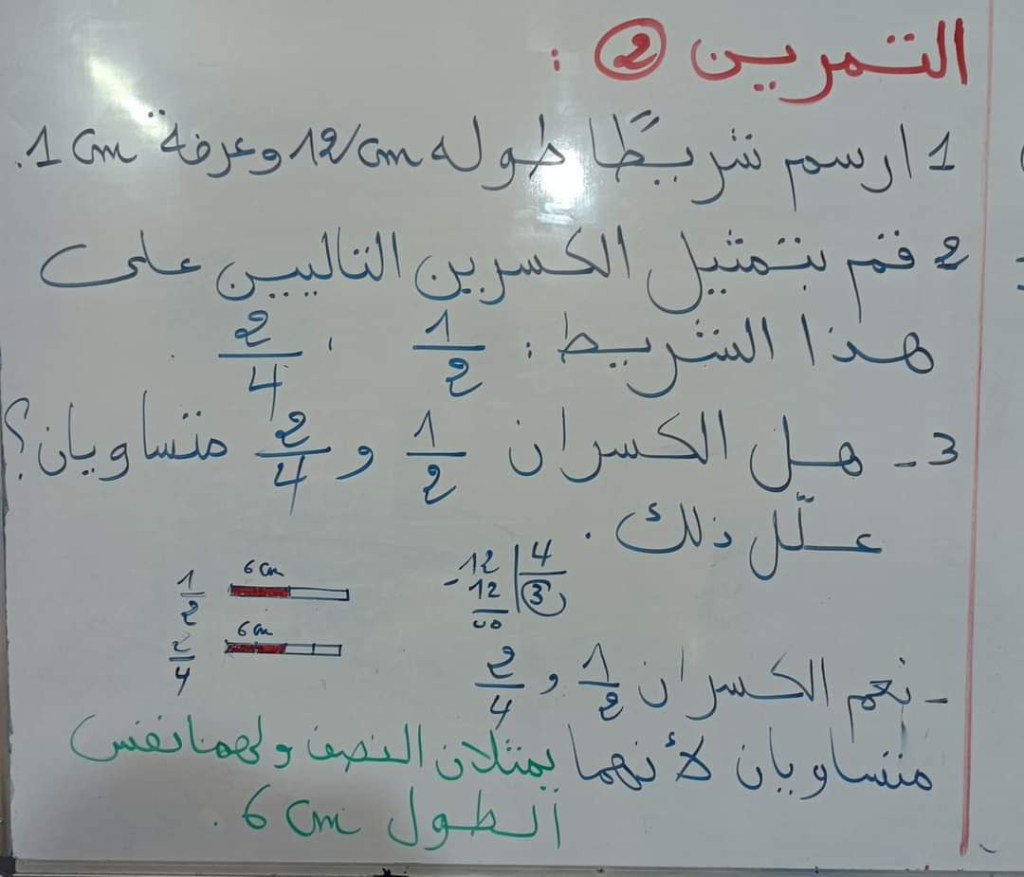 التمرين ② :
1 ارسم شريطًا طوله 12cm وعرضه 1cm.
2 قم بتمثيل الكسرين التاليين على
هذا الشريط : 1/2 ، 2/4 .
3- هل الكسران 1/2 و 2/4 متساويان؟
علّل ذلك .
12 | 4
- 12 | 3
00
1/2 6cm
2/4 6cm
- نعم الكسران 1/2 و 2/4
متساويان لأنهما يمثلان النصف ولهما نفس
الطول 6cm .